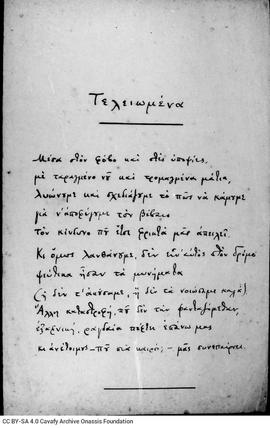 Τελειωμένα
Μέσα στον φόβο και στες υποψίες,
με ταραγμένο νου και τρομαγμένα μάτια,
λυώνουμε και σχεδιάζουμε το πώς να κάμουμε
για ν' αποφύγουμε τον βέβαιο
τον κίνδυνο που έτσι φρικτά μας απειλεί.
Κι όμως λανθάνουμε, δεν είν' αυτός στον δρόμο·
ψεύτικα ήσαν τα μηνύματα
(ή δεν τ' ακούσαμε, ή δεν τα νοιώσαμε καλά).
Άλλη καταστροφή, που δεν την φανταζόμεθαν,
εξαφνική, ραγδαία πέφτει επάνω μας
κι ανέτοιμους — πού πια καιρός; — μας συνεπαίρνει.
CC BY-SA 4.0 Cavafy Archive Onassis Foundation